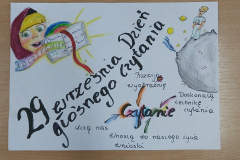 29 września Dzień
głośnego Czytania
Rozwija
wyobraźnię
Doskonali
technikę
czytania
Czytanie
Uczą nas
Wnoszą do naszego życia
wnioski